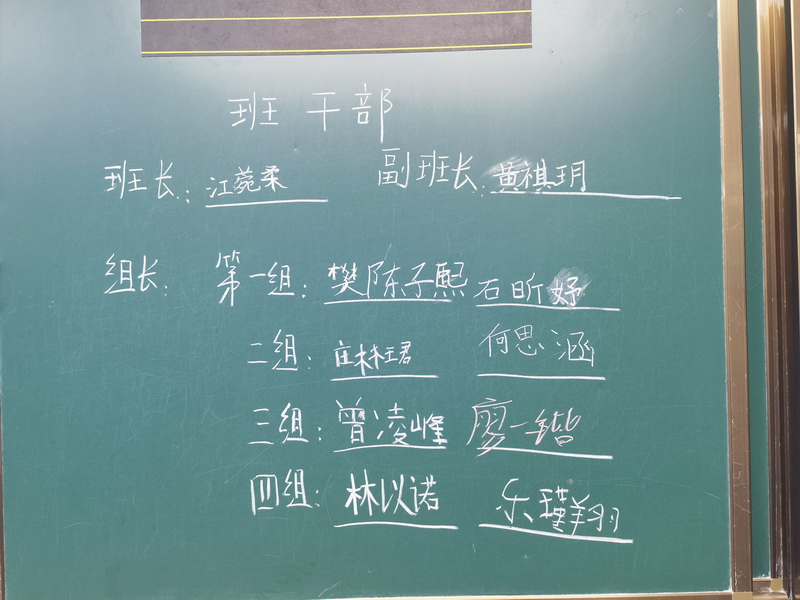 班干部
班长：江菀柔 副班长：黄祺玥
组长：第一组：樊陈子熙 石昕妤
二组：庄林珺 何思涵
三组：曾凌峰 廖一锴
四组：林以诺 乐瑾翔